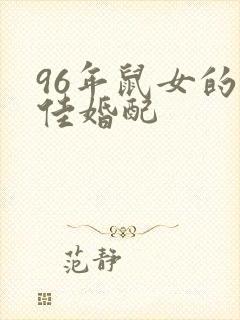 96年鼠女的
佳婚配
范静